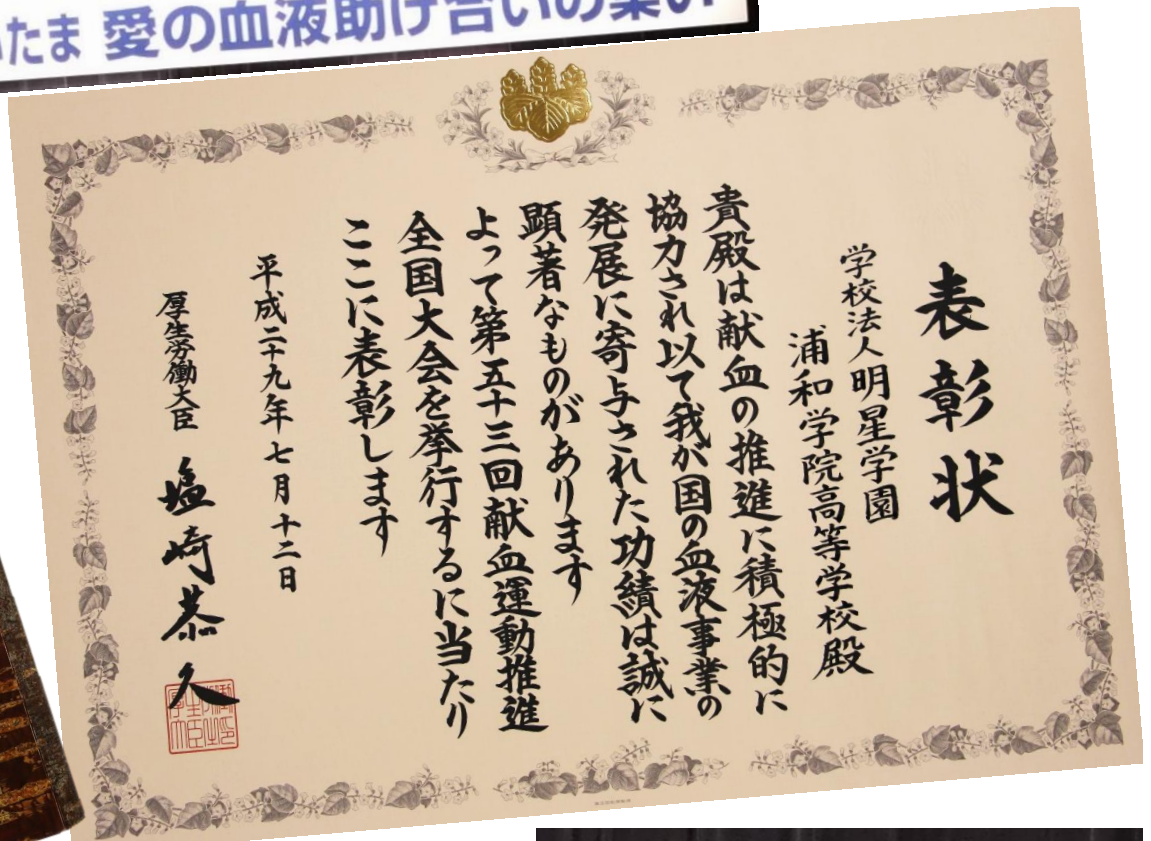 いたま 愛の血液助け合いの集い
表彰状
学校法人明星学園
浦和学院高等学校殿
貴殿は献血の推進に積極的に
協力され以て我が国の血液事業の
発展に寄与された功績は誠に
顕著なものがあります
よって第五十三回献血運動推進
全国大会を挙行するに当たり
ここに表彰します
平成二十九年七月十二日
厚生労働大臣 塩崎恭久